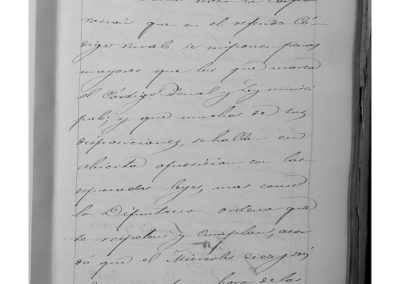 que en el referido Có-
digo rural, se imponen penas
mayores que las que marca
el Código Penal y Ley munici-
pal; y que muchas de sus
disposiciones, se hallan en
abierta oposicion con las
espresadas leyes, mas como
la Diputacion ordena que
se respeten y cumplan, acor-
dó que el Miércoles diez y
hora de las